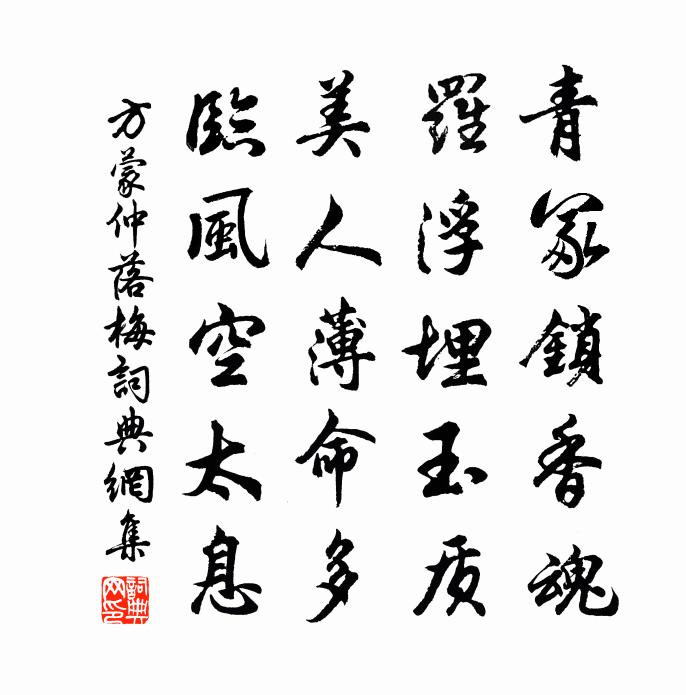 青冢鎖香魂
羅浮埋玉质
美人薄命多
臨風空太息
方蒙仲落梅詞典網集
詞典網印